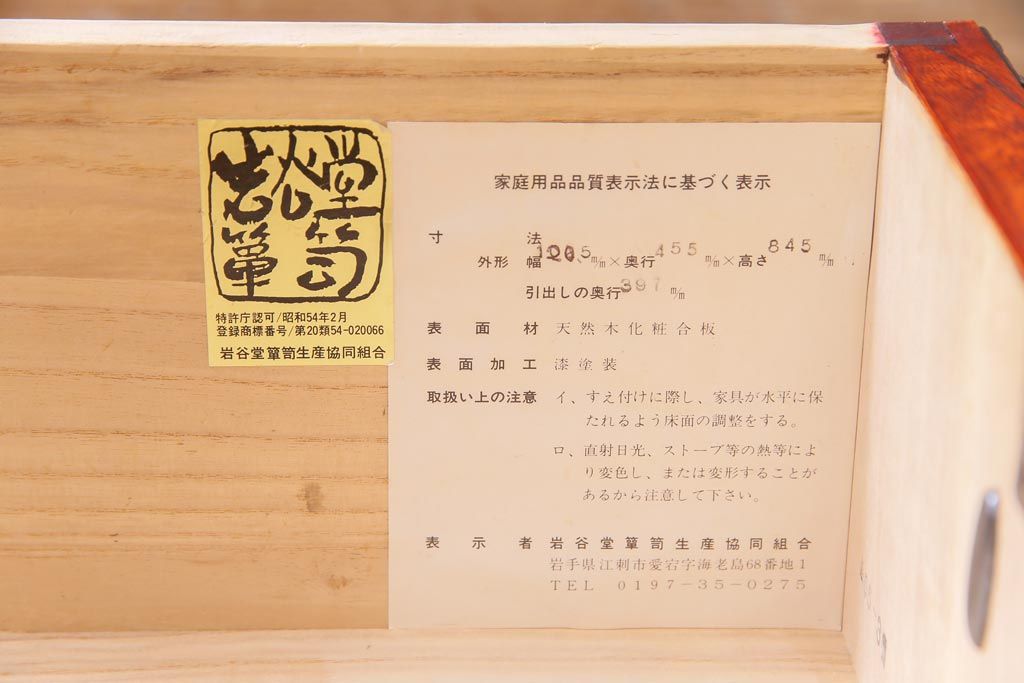 岩谷堂
簞笥
特許庁認可/昭和54年2月
登録商標番号/第20類54-020066
岩谷堂簞笥生産協同組合
家庭用品品質表示法に基づく表示
寸法
外形 幅 1005 ㎜×奥行 455 ㎜×高さ 845 ㎜
引出しの奥行 397 ㎜
表面材 天然木化粧合板
表面加工 漆塗装
取扱い上の注意 イ、すえ付けに際し、家具が水平に保
たれるよう床面の調整をする。
ロ、直射日光、ストーブ等の熱等によ
り変色し、または変形することが
あるから注意して下さい。
表示者 岩谷堂簞笥生産協同組合
岩手県江刺市愛宕字海老島68番地1
TEL 0197-35-0275